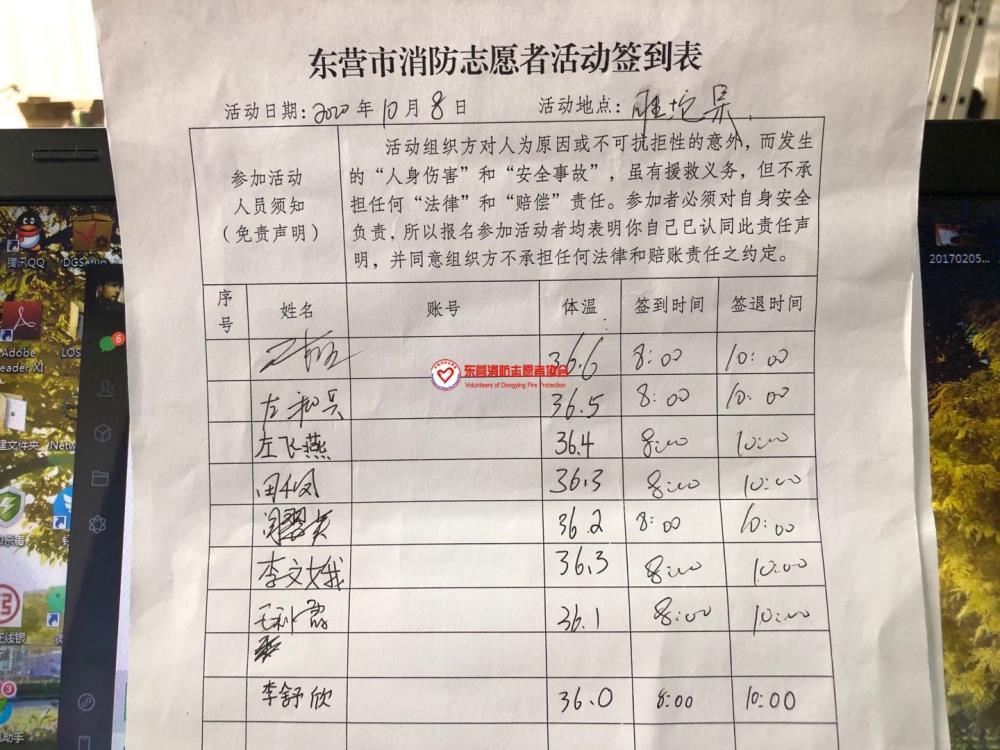 东营市消防志愿者活动签到表
活动日期：2020年10月8日 活动地点：
参加活动
人员须知
（免责声明）
活动组织方对人为原因或不可抗拒性的意外，而发生
的“人身伤害”和“安全事故”，虽有援救义务，但不承
担任何“法律”和“赔偿”责任。参加者必须对自身安全
负责，所以报名参加活动者均表明你自己已认同此责任声
明，并同意组织方不承担任何法律和赔账责任之约定。
序号 姓名 账号 体温 签到时间 签退时间
36.6 8:00 10:00
东营消防志愿者协会
Volunteers of Dongying Fire Protection
左和兴 36.5 8:00 10:00
左飞燕 36.4 8:00 10:00
36.3 8:00 10:00
36.2 8:00 10:00
李文娥 36.3 8:00 10:00
36.1 8:00 10:00
李舒欣 36.0 8:00 10:00
腾讯QQ
DGSetup
Adobe
Reader XI
LOS
6
建文件夹
iNetw
3
20170205...